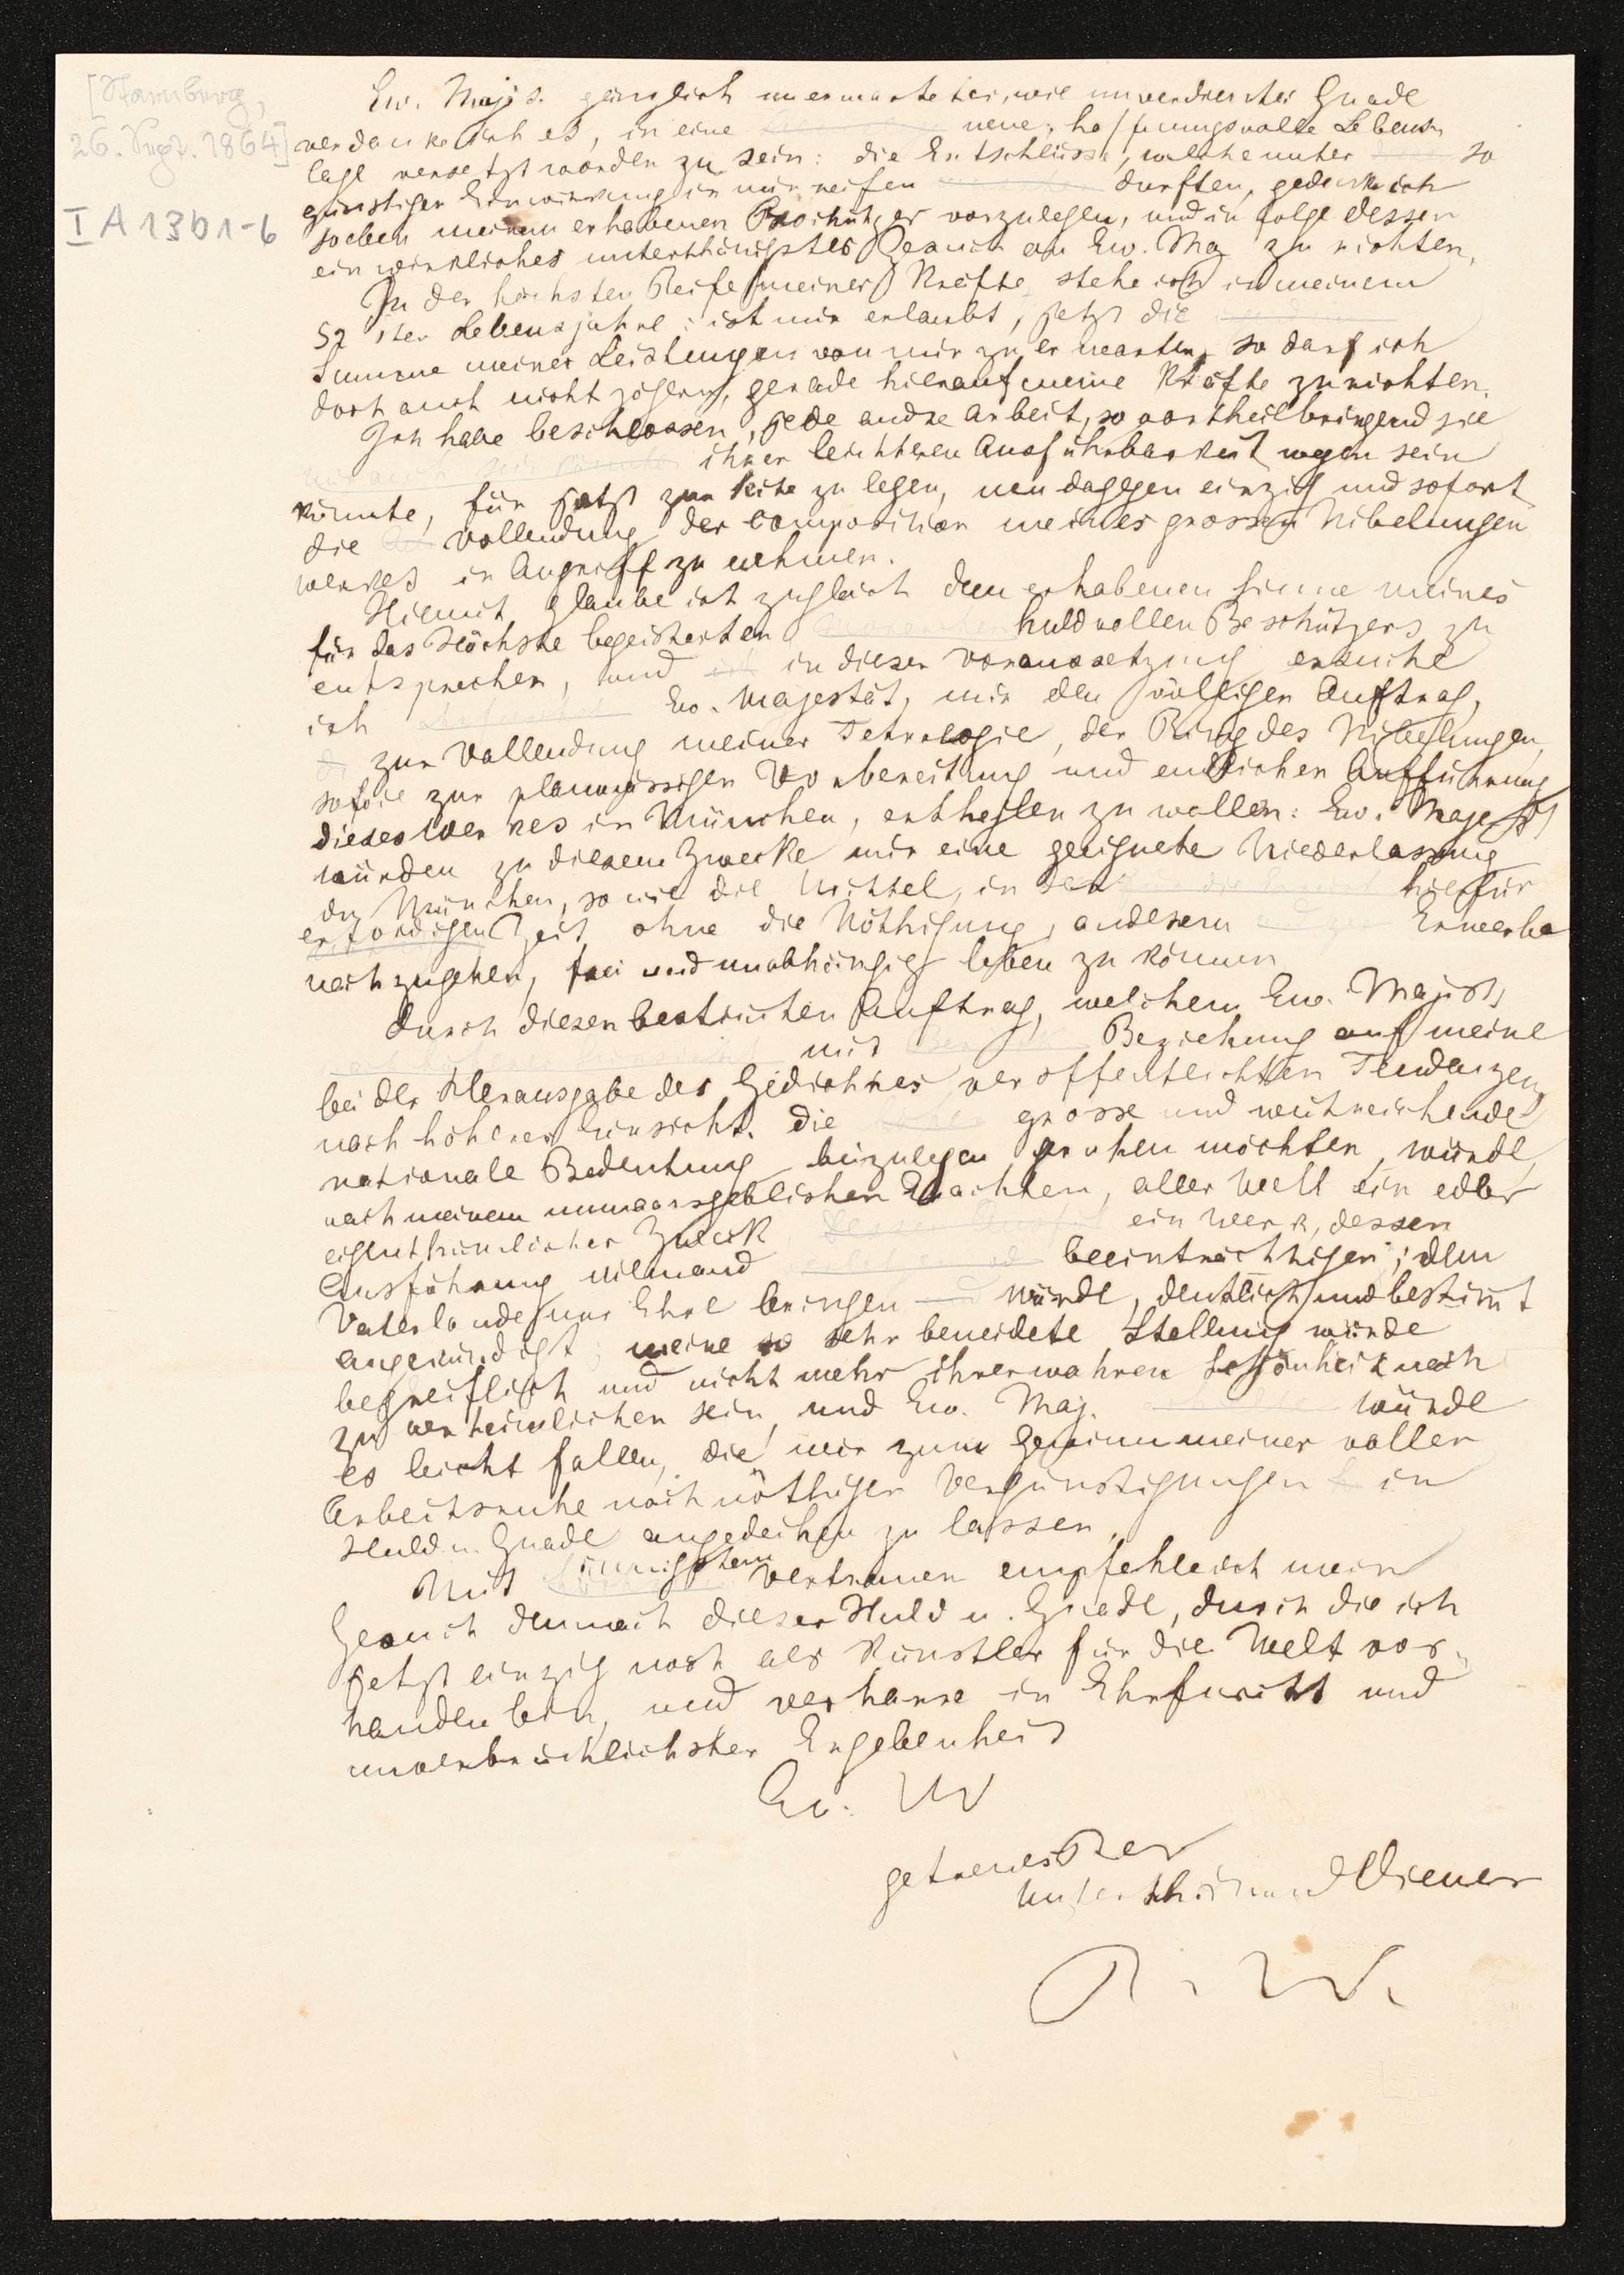 [Starnberg,
26. Sept. 1864]
I A 13 b 1-6
Ew. Majes. gänzlich unerwarteter, wie unverdienter Gnade
verdanke ich es, in eine neue, hoffnungsvolle Lebens-
lage versetzt worden zu sein: die Entschlüsse, welche unter so
günstiger Einwirkung in mir reifen durften, gedenke ich
soeben meinem erhabenen Beschützer vorzulegen, und in folge dessen
ein wirkliches unterthänigstes Gesuch an Ew. Maj zu richten.
In der höchsten Reife meiner Kräfte stehe ich in meinem
52 sten Lebensjahre: ist mir erlaubt, jetzt die
Summe meiner Leistungen von mir zu erwarten, so darf ich
doch auch nicht zögern, gerade hierauf meine Kräfte zu richten.
Ich habe beschlossen, jede andre Arbeit, so vortheilbringend sie
ihrer leichteren Ausführbarkeit wegen sein
könnte, für jetzt zur Seite zu legen, um dagegen einzig und sofort
die Vollendung der Composition meines grossen Nibelungen
werkes in Angriff zu nehmen.
Hiemit glaube ich zugleich dem erhabenen Sinne meines
für das Höchste begeisterten huldvollen Beschützers zu
entsprechen, und in dieser Voraussetzung ersuche
ich Ew. Majestät, mir den völligen Auftrag,
zur Vollendung meiner Tetralogie, der Ring des Nibelungen,
sowie zur planmässigen Vorbereitung und endlichen Aufführung
dieses Werkes in München, ertheilen zu wollen: Ew. Majest
würden zu diesem Zwecke mir eine geeignete Niederlassung
in München, so wie die Mittel, in der hiefür
erfordigen Zeit ohne die Nöthigung, anderem Erwerbe
nachzugehen, frei und unabhängig leben zu können
Durch diesen bestimten Auftrag, welchem Ew. Majest
mit Beziehung auf meine
bei der Herausgabe des Gedichtes veröffentlichten Tendenzen
nach höherer Einsicht die grosse und weitreichende
nationale Bedeutung beizulegen geruhen möchten, würde,
nach meinem unmaasgeblichen Erachten, aller Welt ein edler
eigenthümlicher Zweck ein Werk, dessen
Ausführung niemand beeinträchtigen, dem
Vaterlande nur Ehre bringen würde, deutlich und bestimt
angekündigt; meine so sehr beneidete Stellung würde
begreiflich und nicht mehr ihrer wahren Schönheit nach
zu verheimlichen sein, und Ew. Maj. würde
es leicht fallen, die mir zum Gewinn meiner vollen
Arbeitsruhe noch nöthigen Vergünstigungen in
Huld u. Gnade angedeihen zu lassen.
Mit innigstem Vertrauen empfehle ich mein
Gesuch demnach dieser Huld u. Gnade, durch die ich
jetzt einzig noch als Künstler für die Welt vor-
handen bin, und verharre in Ehrfurcht und
unverbrüchlichster Ergebenheit
Ew. M
getreuester
Diener
R. W.